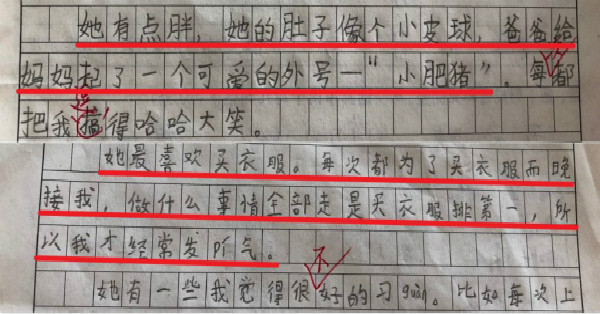 她有点胖，她的肚子像个小皮球，爸爸给
妈妈起了一个可爱的外号一"小肥猪"。每都
把我搞得哈哈大笑。
她最喜欢买衣服。每次都为了买衣服而晚
接我，做什么事情全部走是买衣服排第一，所
以我才经常发斤气。
不
她有一些我觉得很好的习guàn。比如每次上